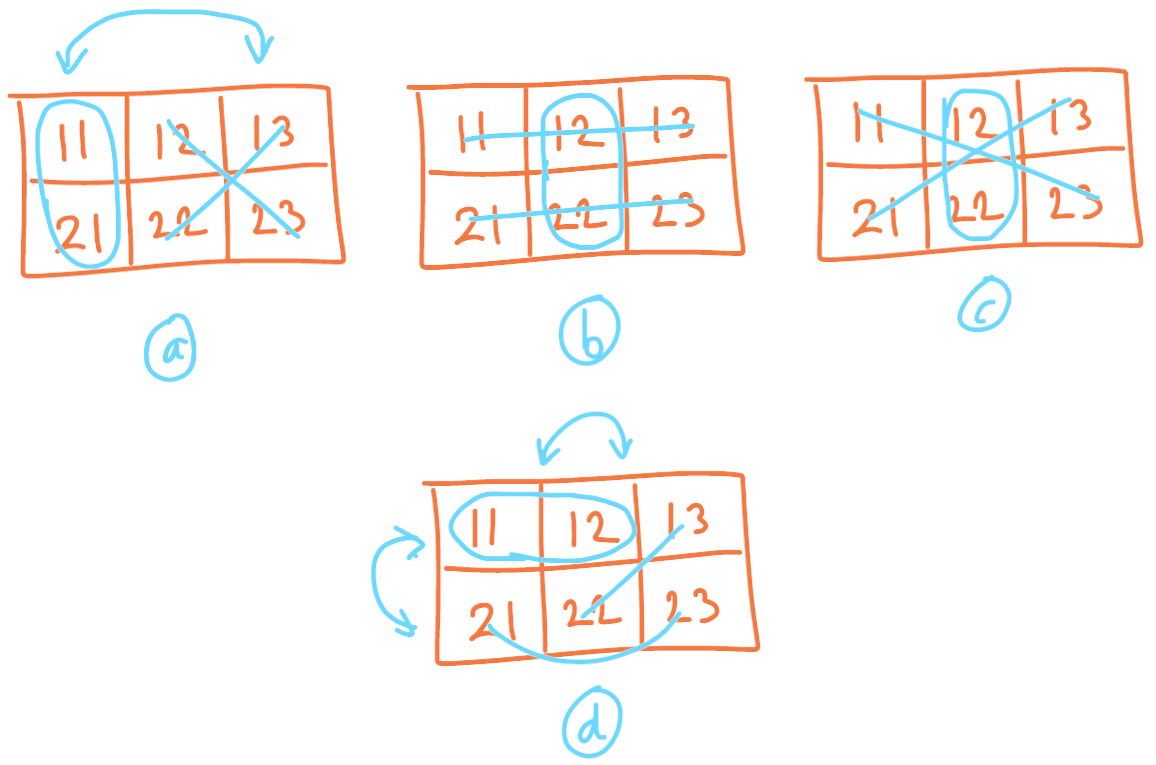 11 12 13
21 22 23
a
11 12 13
21 22 23
b
11 12 13
21 22 23
c
11 12 13
21 22 23
d